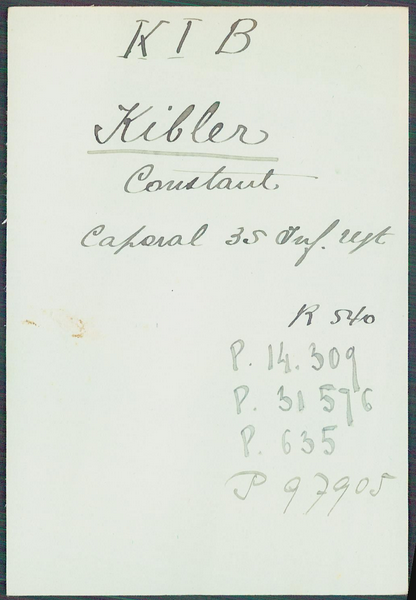 KIB
Kibler
Constant
Caporal 35 Inf. rgt
R 540
P. 14.309
P. 31576
P. 635
P 97905